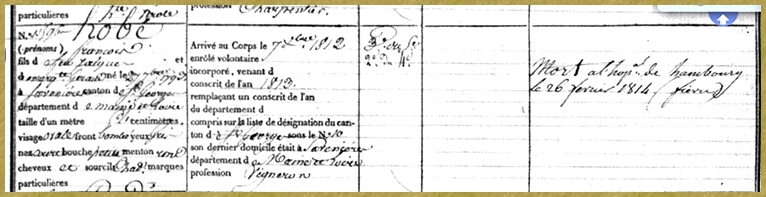 particulières
profession Charpentier.
N.º
Robé
(prénoms) françois
fils d feu Jacques et
d né le
à Savenières canton de St. Georges
département d e maine et Loire
taille d'un mètre centimètres,
visage ovale front bombé yeux gris
nez bouche petite menton rond
cheveux et sourcils chat. marques
particulières
Arrivé au Corps le 7 xbre 1812
enrôlé volontaire
incorporé, venant d
conscrit de l'an 1813
remplaçant un conscrit de l'an
du département d
compris sur la liste de désignation du can-
ton d e St. George sous le N.º 10
son dernier domicile était à Savenières
département d e Maine et Loire
profession Vigneron
Mort a l'hopal. de hambourg
le 26 fevrier 1814 (fievre)